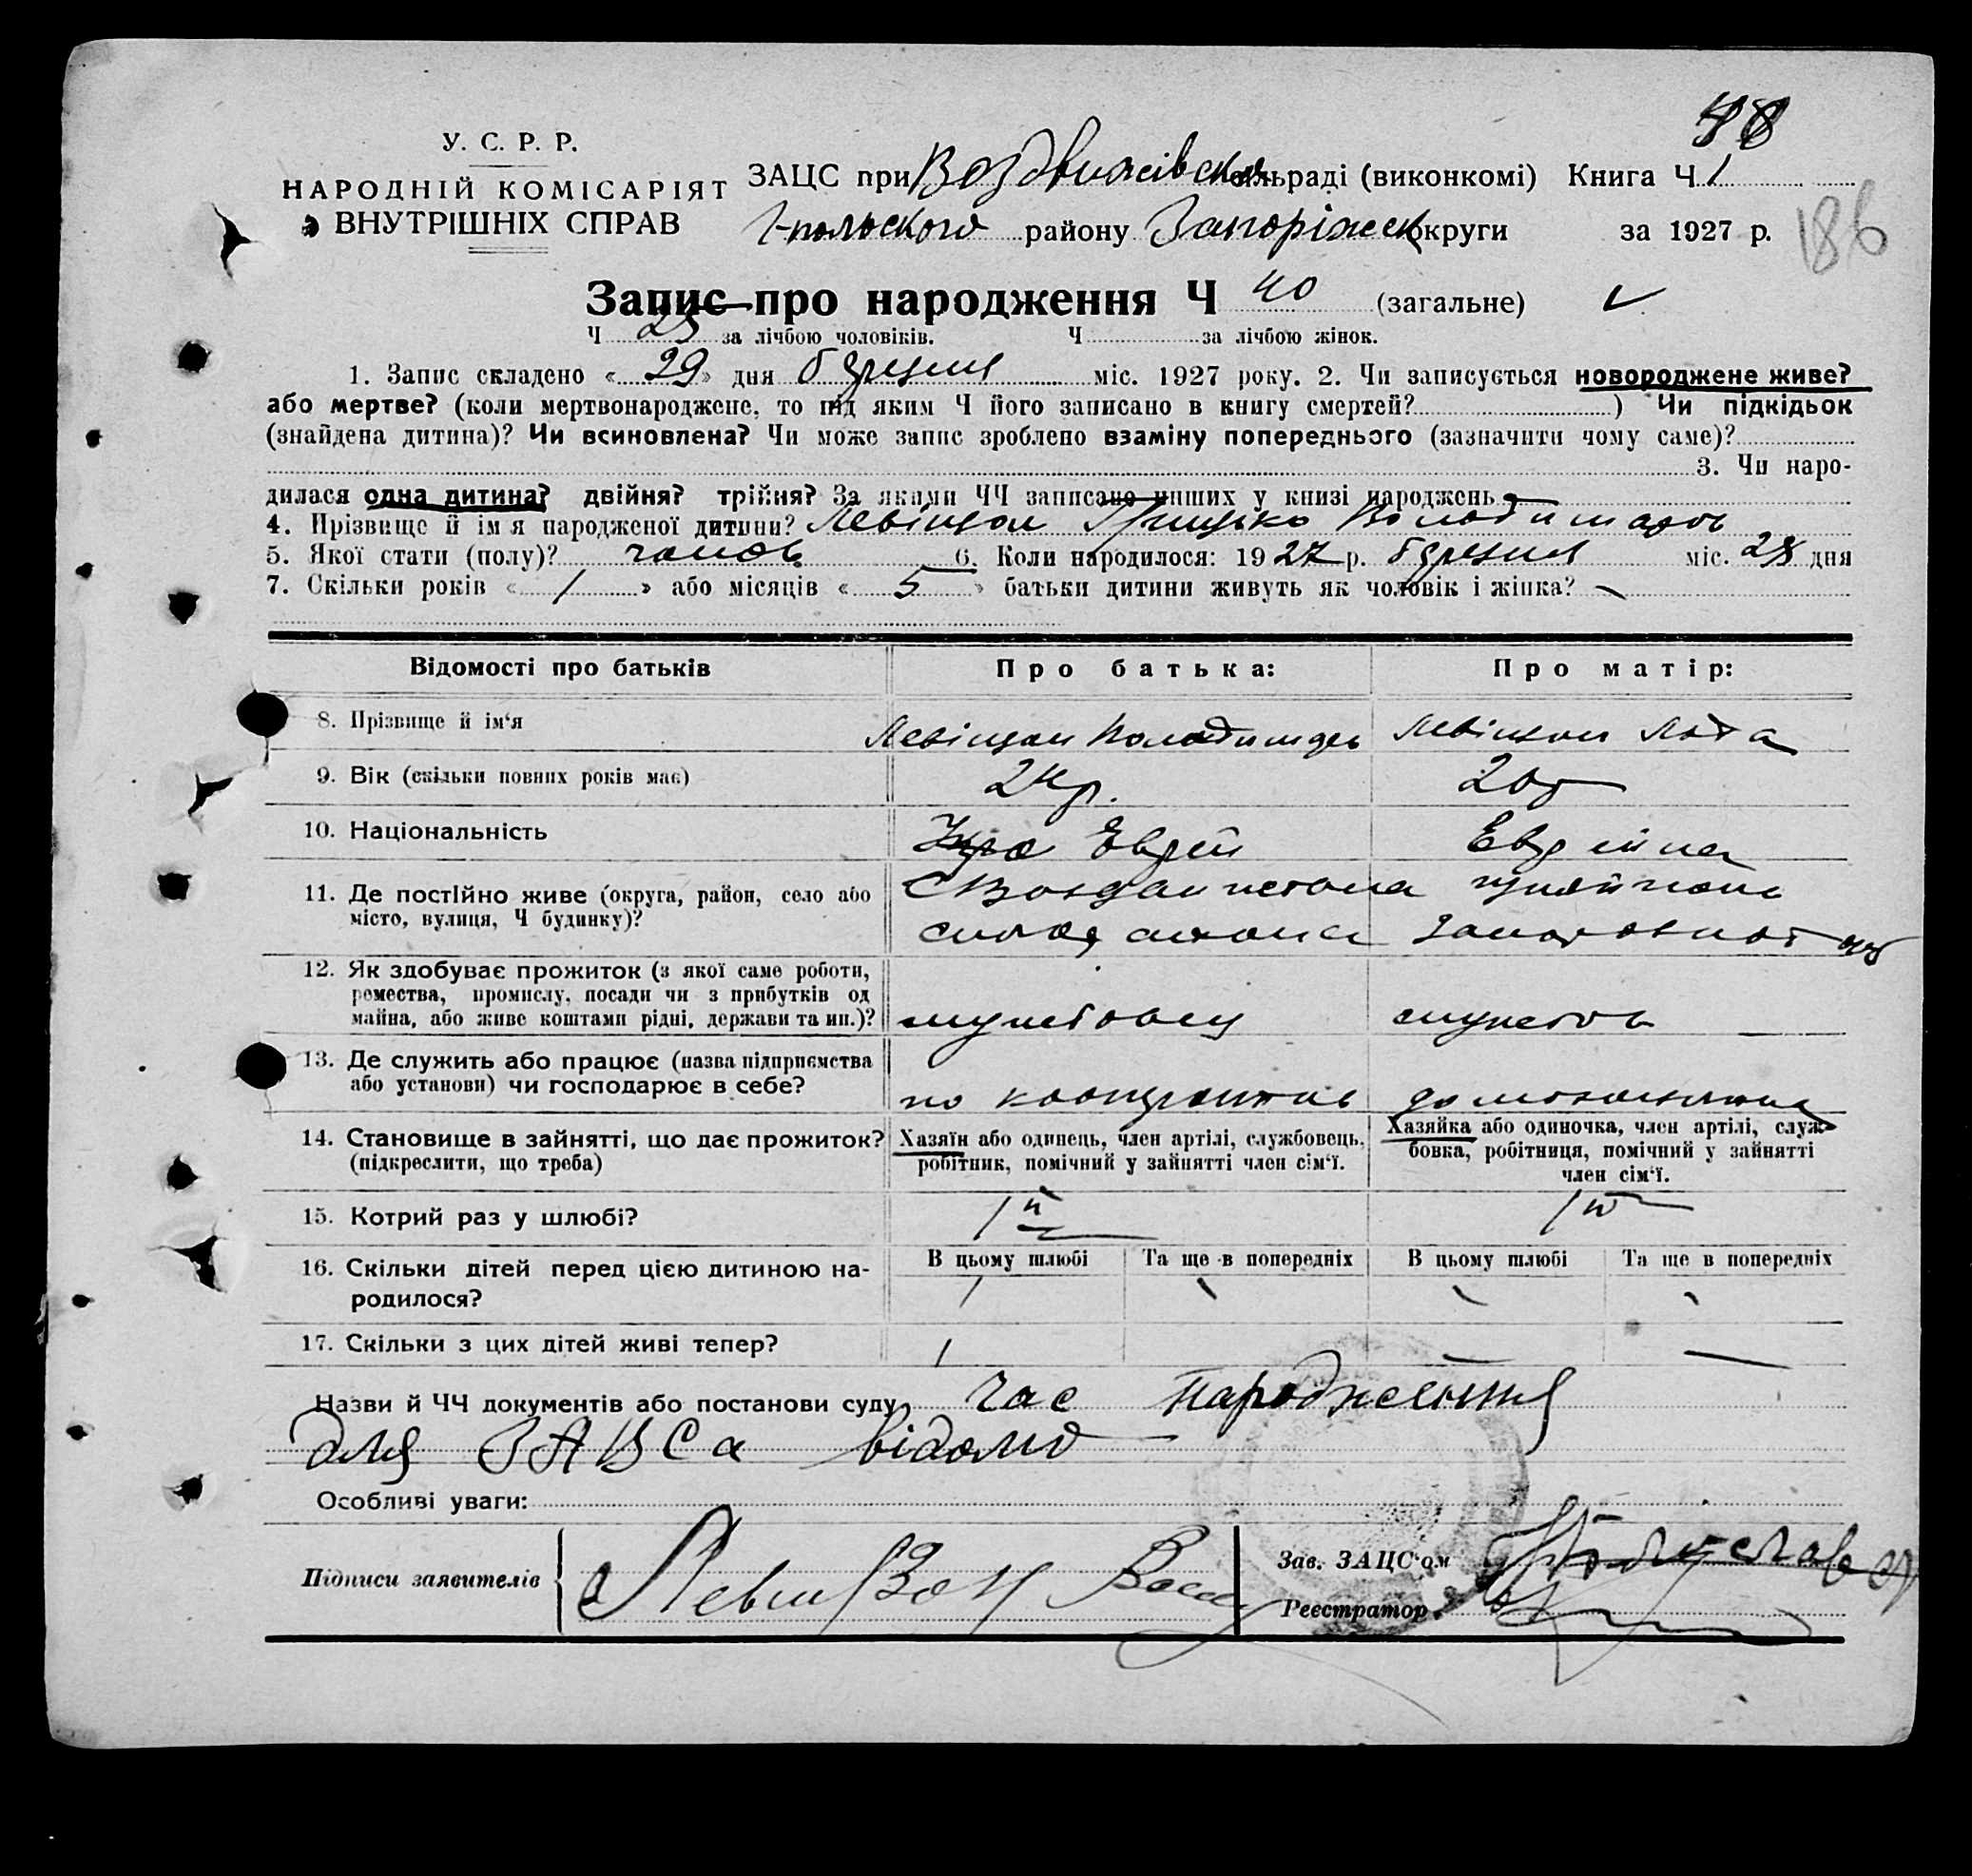 48
У. С. Р. Р.
НАРОДНІЙ КОМІСАРІЯТ
ВНУТРІШНІХ СПРАВ
ЗАЦС при Воздвижівск сільраді (виконкомі) Книга Ч 1
Г-польского району Запоріжск округи за 1927 р.
186
Запис про народження Ч 40 (загальне)
Ч 25 за лічбою чоловіків. Ч за лічбою жінок.
1. Запис складено « 29 » дня березня міс. 1927 року. 2. Чи записується новороджене живе?
або мертве? (коли мертвонароджене, то під яким Ч його записано в книгу смертей? ) Чи підкідьок
(знайдена дитина)? Чи всиновлена? Чи може запис зроблено взаміну попереднього (зазначити чому саме)?
3. Чи наро-
дилася одна дитина? двійня? трійня? За якими ЧЧ записано инших у книзі народжень
4. Прізвище й ім'я народженої дитини? Левінцон Грицько Володимиров
5. Якої стати (полу)? чолов. 6. Коли народилося: 1927 р. березня міс. 28 дня
7. Скільки років « 1 » або місяців « 5 » батьки дитини живуть як чоловік і жінка?
Відомості про батьків Про батька: Про матір:
8. Прізвище й ім'я Левінцон Володимир Левінцон
9. Вік (скільки повних років має) 24 р. 20
10. Національність Еврей Еврейка
11. Де постійно живе (округа, район, село або
місто, вулиця, Ч будинку)?
12. Як здобуває прожиток (з якої саме роботи,
ремества, промислу, посади чи з прибутків од
майна, або живе коштами рідні, держави та ин.)?
13. Де служить або працює (назва підприємства
або установи) чи господарює в себе?
14. Становище в зайнятті, що дає прожиток?
(підкреслити, що треба)
Хазяїн або одинець, член артілі, службовець,
робітник, помічний у зайнятті член сім'ї.
Хазяйка або одиночка, член артілі, служ-
бовка, робітниця, помічний у зайнятті
член сім'ї.
15. Котрий раз у шлюбі? 1й 1й
16. Скільки дітей перед цією дитиною на-
родилося?
В цьому шлюбі Та ще в попередніх В цьому шлюбі Та ще в попередніх
1
17. Скільки з цих дітей живі тепер? 1
Назви й ЧЧ документів або постанови суду час народження
для ЗАВСа відомо
Особливі уваги:
Підписи заявителів Левинзон
Зав. ЗАЦС'ом
Реєстратор